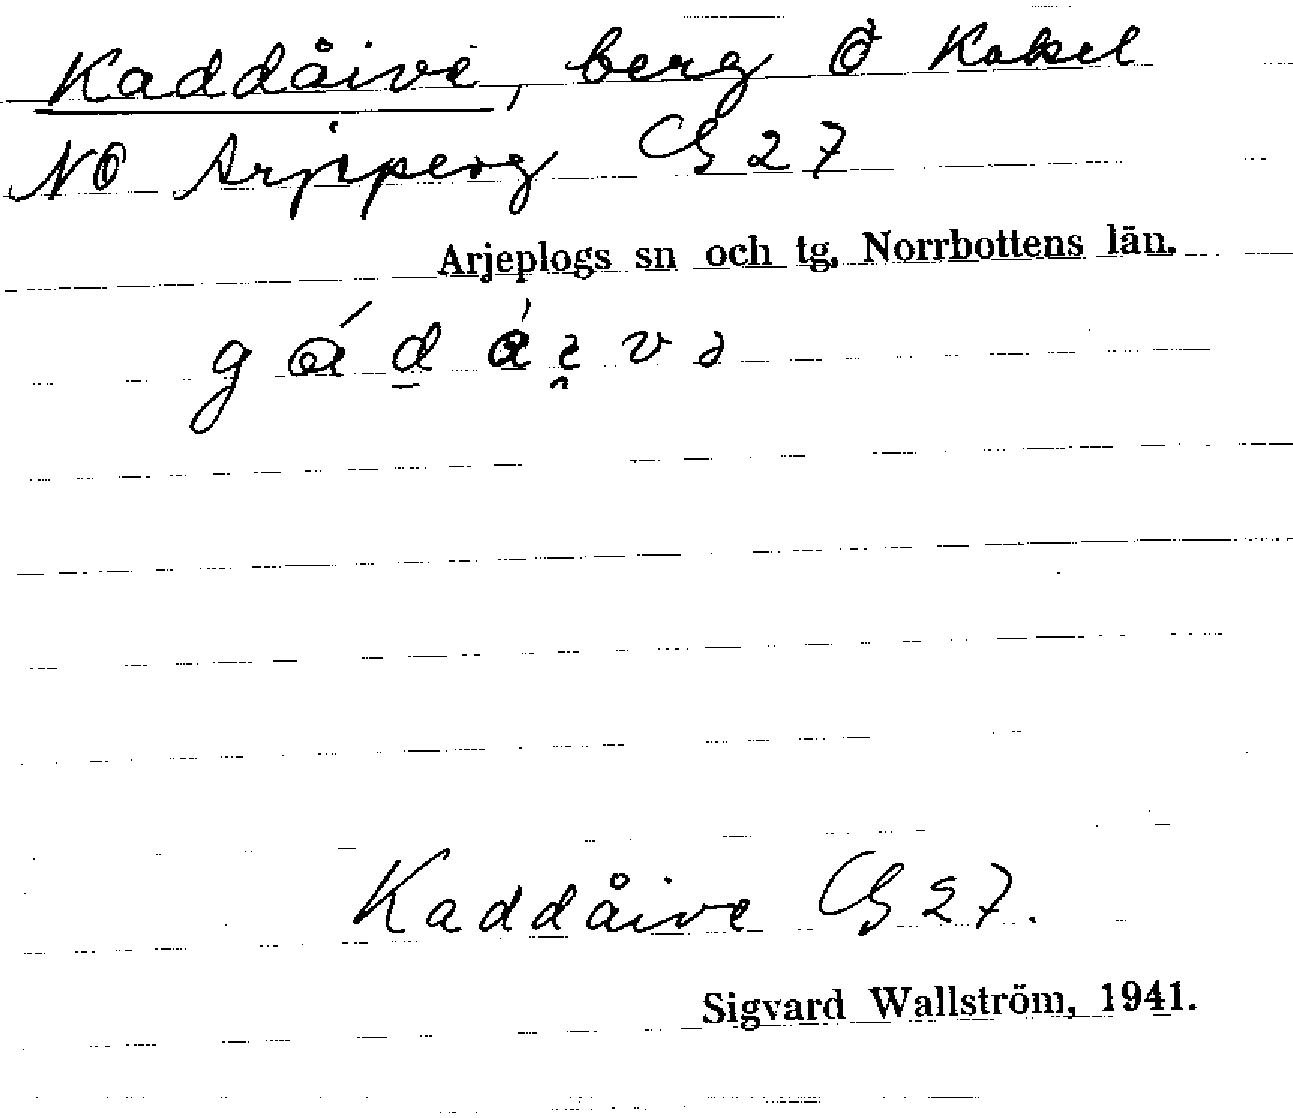 Kaddåive, berg Ö Kakel
NO Arjep­perg GS 27
Arjeplogs sn och tg. Norrbottens län.
g á d
Kaddåive GS 27.
Sigvard Wallström, 1941.